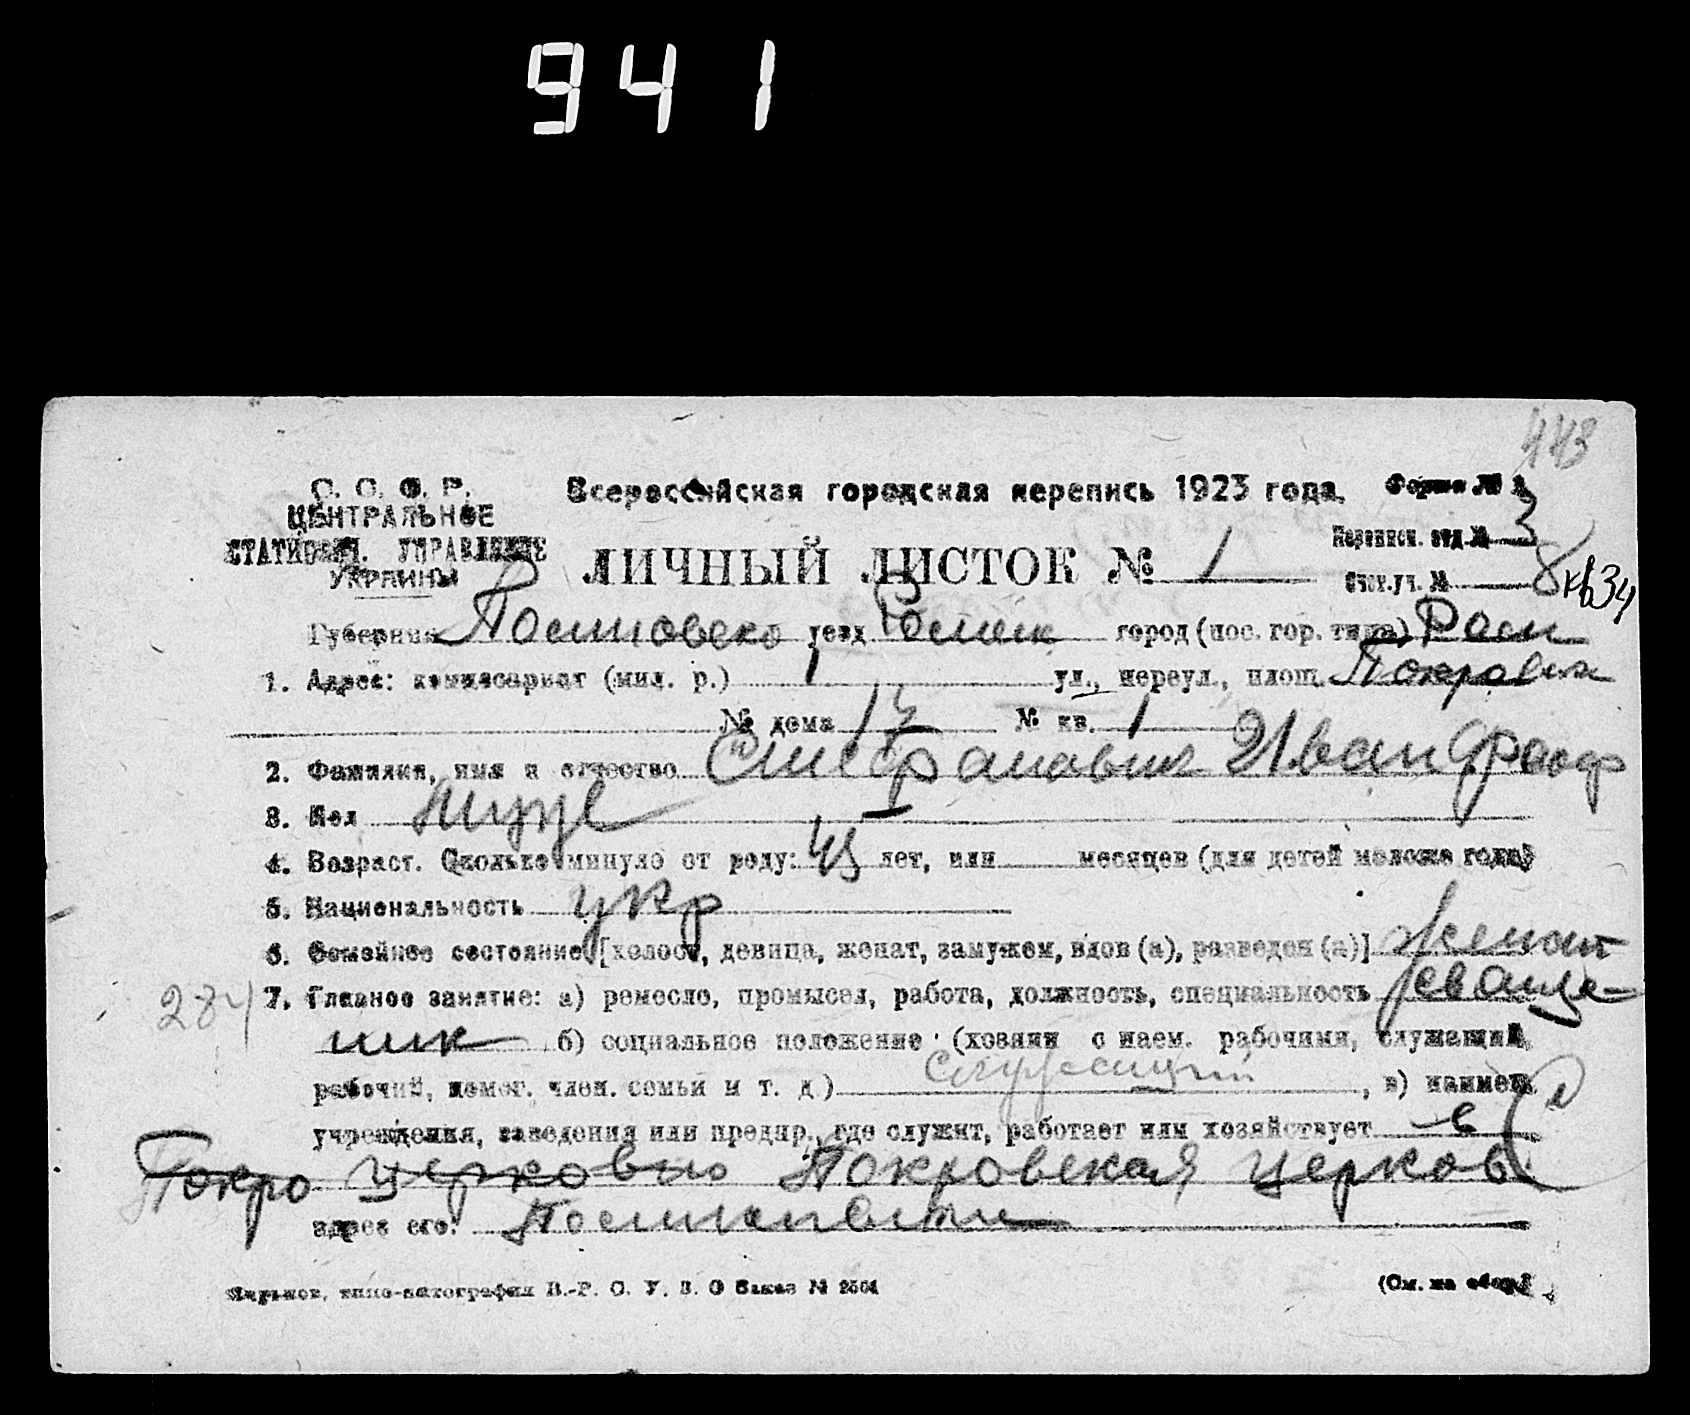 941
443
С. С. С. Р.
ЦЕНТРАЛЬНОЕ
СТАТИСТИЧ. УПРАВЛЕНИЕ
УКРАИНЫ
Всероссийская городская перепись 1923 года.
Форма № 1
ЛИЧНЫЙ ЛИСТОК № 1
Переписн. отд. № 3
Счетн. уч. № 8 кв 34
Губерния уезд город (пос. гор. типа)
1. Адрес: комиссариат (мил. р.) 1 ул., переул., площ.
№ дома 17 № кв. 1
2. Фамилия, имя и отчество Иван
3. Пол муж
4. Возраст. Сколько минуло от роду: 45 лет, или месяцев (для детей моложе года)
5. Национальность укр
6. Семейное состояние [холост, девица, женат, замужем, вдов (а), разведен (а)] женат
284
7. Главное занятие: а) ремесло, промысел, работа, должность, специальность священ-
ник б) социальное положение (хозяин с наем. рабочими, служащий,
рабочий, помог. член. семьи и т. д.) служащий, в) наимен.
учреждения, заведения или предпр., где служит, работает или хозяйствует в
Покро церковью Покровская церковь
адрес его:
Харьков, типо-литография В.-Р. С. У. З. О Заказ № 2504
(См. на обор.)